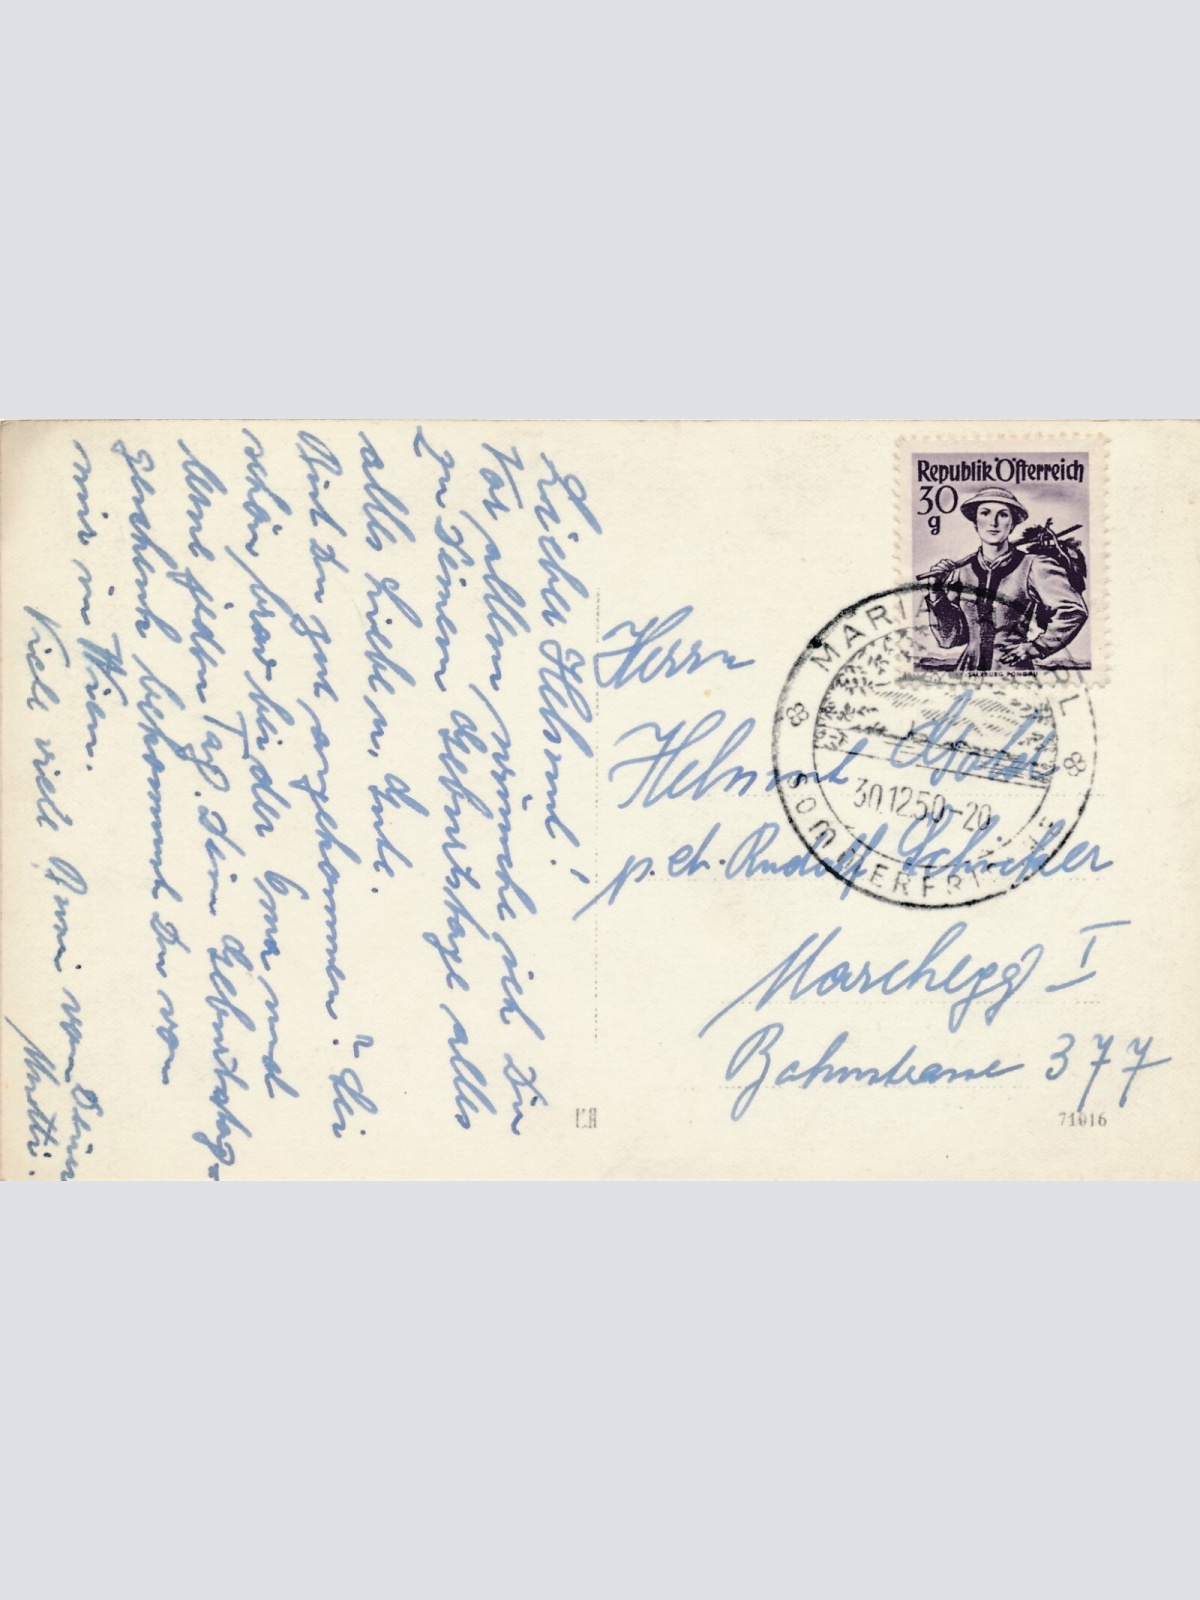 Lieber Helmut!
Vor allem wünsche ich Dir
zu Deinem Geburtstage alles
alles Liebe u. Gute.
Bist Du gut angekommen? Sei
schön brav bei der Oma und
lerne jeden Tag. Dein Geburtstag-
geschenk bekommst Du von
mir in Wien.
Viele viele Bussi von Deiner
Mutti.
Republik Österreich
30
g
SALZBURG, PONGAU
MARIA
30.12.50-20
SOMMERFRI
Herrn
Helmut
p. Adr. Rudolf
Marchegg I
Bahnstrasse 377
71016